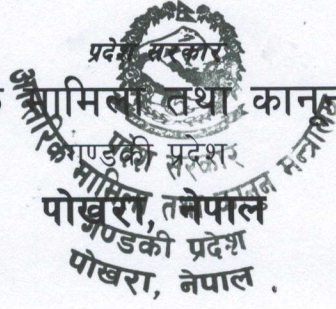 प्रदेश सरकार
मामिला तथा कानून
गण्डकी प्रदेश
पोखरा, नेपाल
आन्तरिक मामिला तथा कानून मन्त्रालय
प्रदेश सरकार
गण्डकी प्रदेश
पोखरा, नेपाल .